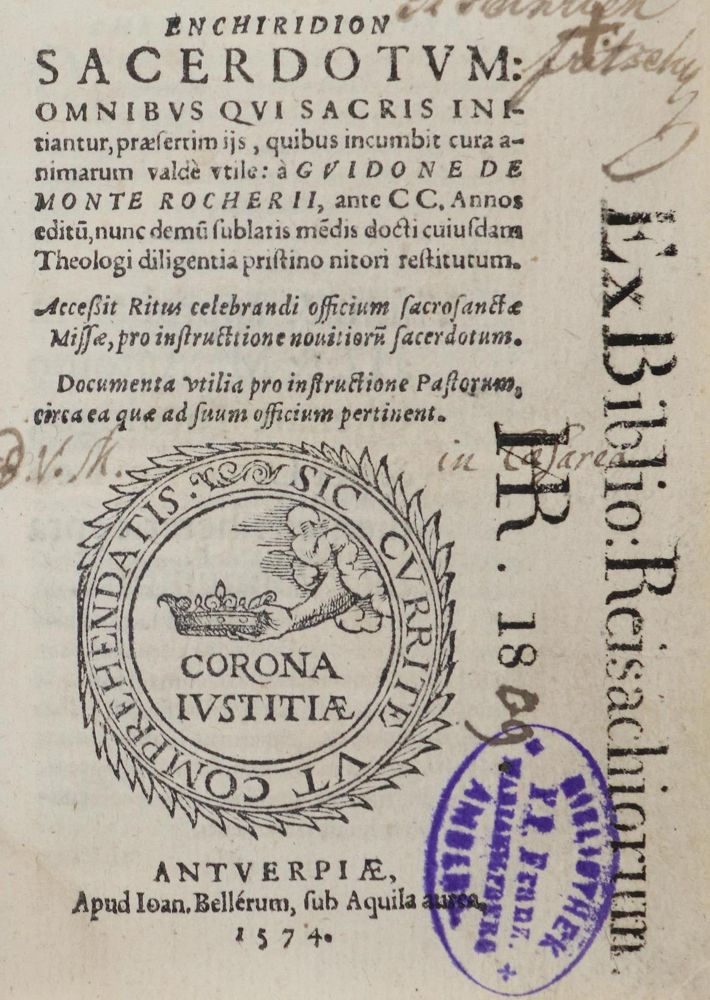 ENCHIRIDION
SACERDOTVM:
OMNIBVS QVI SACRIS INI-
tiantur, præsertim ijs, quibus incumbit cura a-
nimarum valdè vtile: à GVIDONE DE
MONTE ROCHERII, ante CC. Annos
editū, nunc demū sublatis mēdis docti cuiusdam
Theologi diligentia pristino nitori restitutum.
Acceßit Ritus celebrandi officium sacrosanctæ
Missæ, pro instructione nouitiorū sacerdotum.
Documenta vtilia pro instructione Pastorum,
circa ea quæ ad suum officium pertinent.
V. M.
in Cæsarea
SIC CVRRITE VT COMPREHENDATIS.
CORONA
IVSTITIÆ
ANTVERPIÆ,
Apud Ioan. Bellérum, sub Aquila aurea,
1574.
Ex Biblio: Reisachiorum.
HR. 1809.
BIBLIOTHEK
FF. Franz.
MARIAHILFBERG
AMBERG